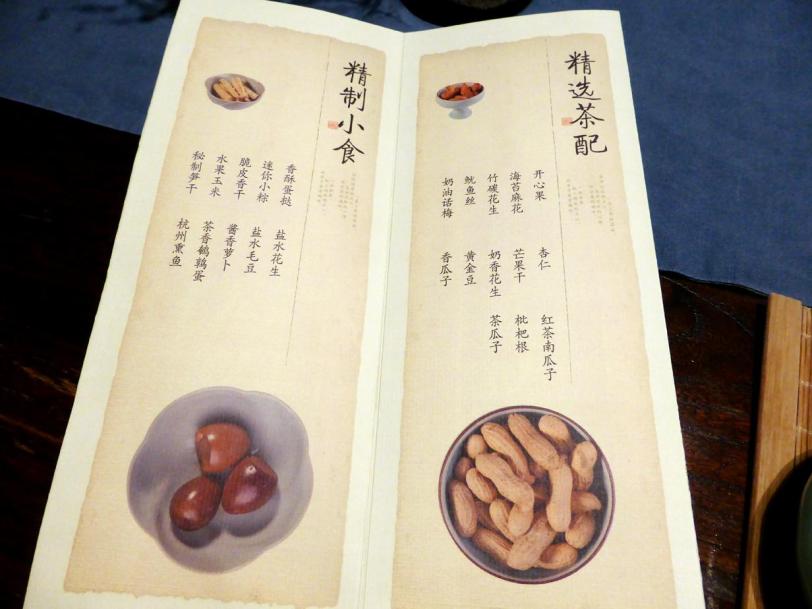 精选茶配
开心果
海苔麻花
竹碳花生
鱿鱼丝
奶油话梅
杏仁
芒果干
奶香花生
黄金豆
香瓜子
红茶南瓜子
枇杷根
茶瓜子
精制小食
香酥蛋挞
迷你小粽
脆皮香干
水果玉米
秘制笋干
盐水花生
盐水毛豆
酱香萝卜
茶香鹌鹑蛋
杭州熏鱼